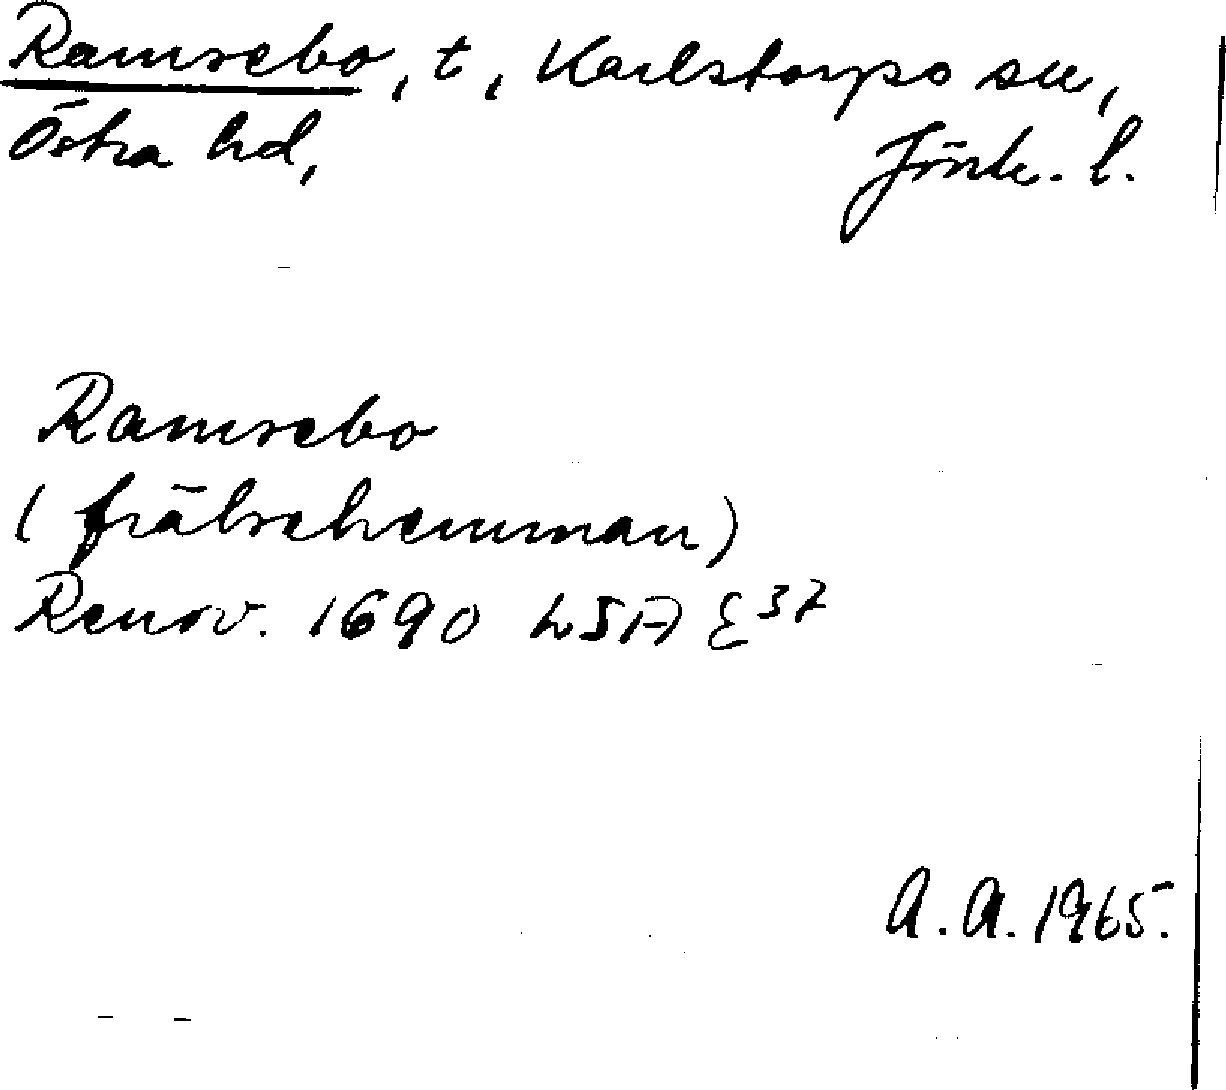 Ramsebo, t, Karlstorps sn,
Östra hd, Jönk. l.
Ramsebo
(frälsehemman)
Renov. 1690 LSA E37
A. A. 1965.